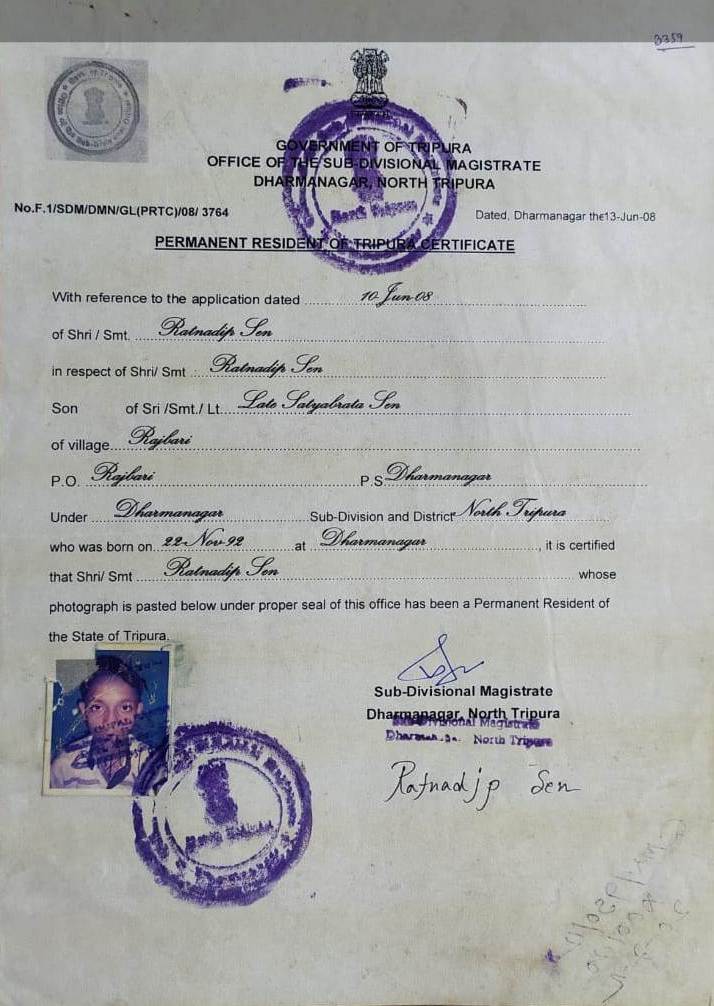 3359
GOVERNMENT OF TRIPURA
OFFICE OF THE SUB-DIVISIONAL MAGISTRATE
DHARMANAGAR, NORTH TRIPURA
No.F.1/SDM/DMN/GL(PRTC)/08/ 3764
Dated, Dharmanagar the13-Jun-08
PERMANENT RESIDENT OF TRIPURA CERTIFICATE
With reference to the application dated 10-Jun-08
of Shri / Smt. Ratnadip Sen
in respect of Shri/ Smt Ratnadip Sen
Son of Sri /Smt./ Lt. Late Satyabrata Sen
of village Rajbari
P.O. Rajbari P.S Dharmanagar
Under Dharmanagar Sub-Division and District North Tripura
who was born on 22-Nov-92 at Dharmanagar, it is certified
that Shri/ Smt Ratnadip Sen whose
photograph is pasted below under proper seal of this office has been a Permanent Resident of
the State of Tripura.
Sub-Divisional Magistrate
Dharmanagar, North Tripura
Sub-Divisional Magistrate
North Tripura
Ratnadip Sen